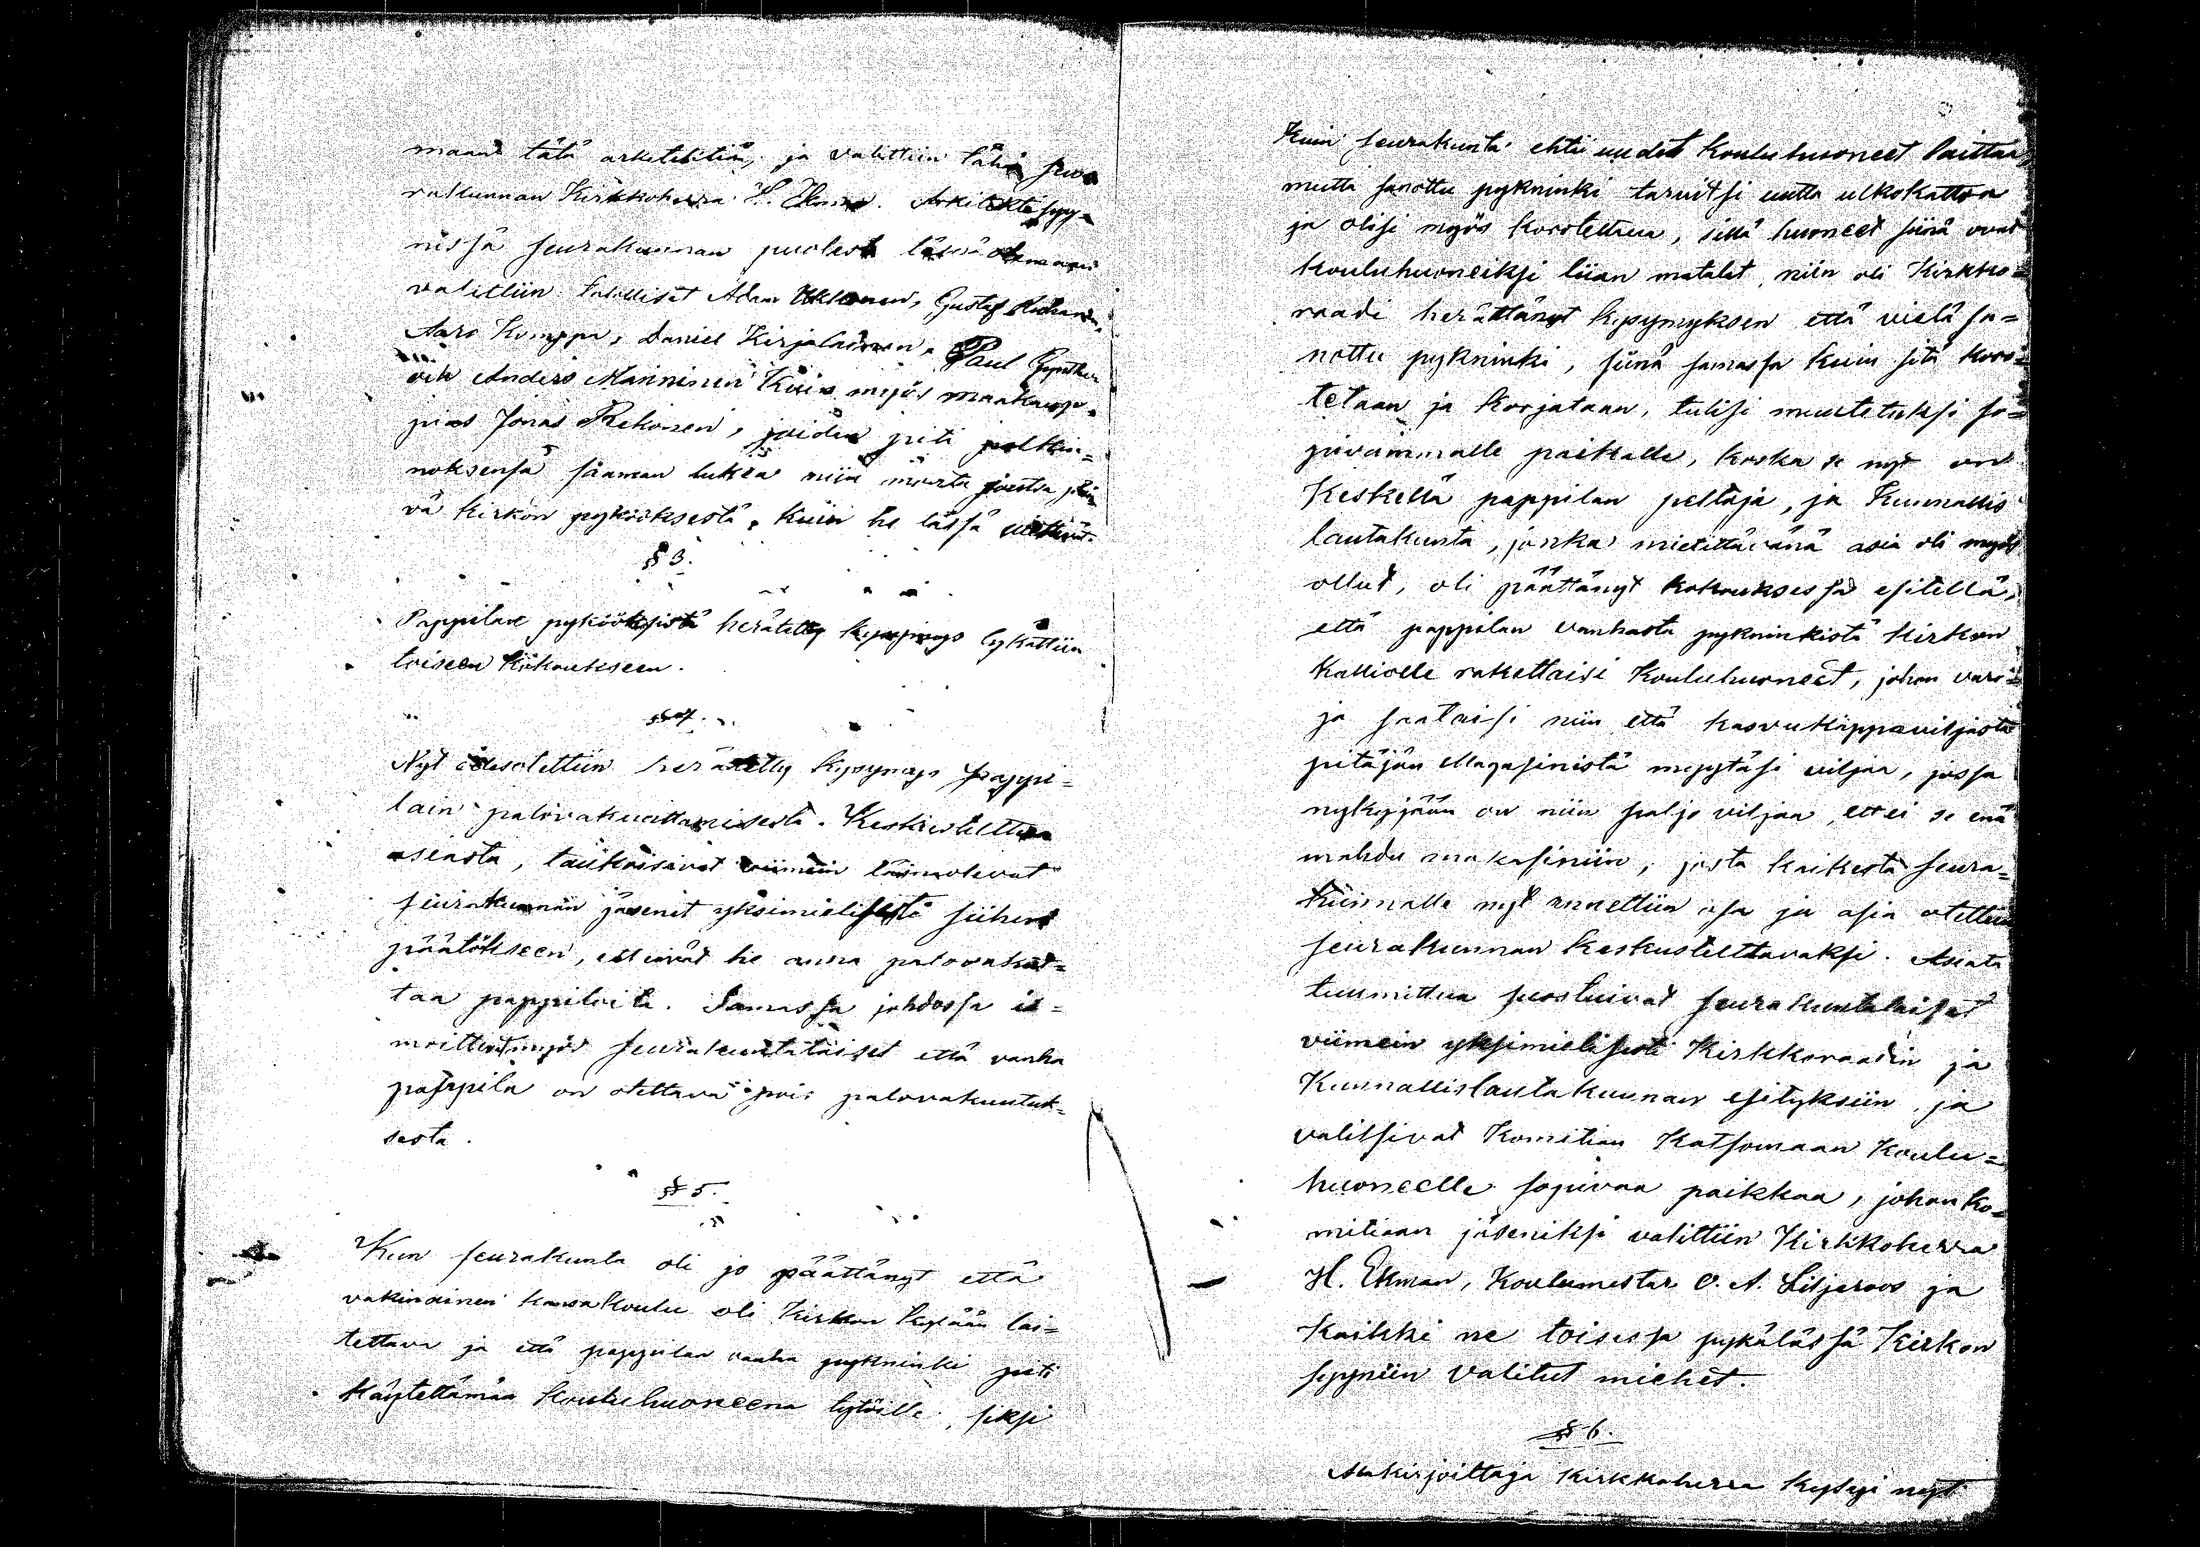 maan tätä arkitektiä, ja valittiin tähän seu=
rakunnan Kirkkoherra H. Ekman. Arkitektisyy=
nissä seurakunnan puolesta läsnä olemaan
valittiin talolliset Adam Ukkonen, Gustaf
Aaro Kemppi, Daniel Kirjalainen, Paul
sek Anders Manninen kuin myös maakaup=
pias Jonas Rekonen, joiden piti palkin=
noksensa saaman lukea niin monta
vä kirkon pykööksestä, kuin he tässä
§ 3.
Pappilan pykööksistä herätetty kysymys lykättiin
toiseen kokoukseen.
§ 4.
Nyt edesotettiin herätetty kysymys pappi=
lain palovakuuttamisesta. Keskusteltua
asiasta, taukoisivat viimein läsnäolevat
seurakunnan jäsenet yksimielisesti siihen
päätökseen, etteivät he anna palovakuut=
taa pappiloita. Samassa johdossa il=
moittivat myös seurakuntalaiset että vanha
pappila on otettava pois palovakuutuk=
sesta.
§ 5.
Kun seurakunta oli jo päättänyt että
vakinainen kansakoulu oli Kirkon kylään lai=
tettava ja että pappilan vanha pykninki piti
käytettämän kouluhuoneena tytöille, siksi
Kuin seurakunta ehti uudet kouluhuoneet laittaa,
mutta sanottu pykninki tarvitsi uutta ulkokattoa
ja olisi myös korotettava, sillä huoneet siinä ovat
kouluhuoneiksi liian matalat, niin oli Kirkko=
raadi herättänyt kysymyksen että vielä sa=
nottu pykninki, siinä samassa kuin sitä koro=
tetaan ja korjataan, tulisi muutetuksi so=
pivammalle paikalle, koska se nyt on
Keskellä pappilan peltoja, ja Kunnallis
lautakunta, jonka mietittävänä asia oli myös
ollut, oli päättänyt kokouksessa esitellä,
että pappilan vanhasta pykninkistä kirkon
Kalliolle rakettaisi kouluhuoneet, johon varo=
ja saataisi niin että kasvukappaviljasta
pitäjän Magasinista myytäsi viljaa, jossa
nykyjään on niin paljo viljaa, ettei se enä
mahdu makasiniin, josta kaikesta seura=
kunnalle nyt annettiin osa ja asia otettiin
seurakunnan keskusteltavaksi. Asiata
tuumittua suostuivat seurakuntalaiset
viimein yksimielisesti Kirkkoraadin ja
Kunnallislautakunnan esityksiin ja
valitsivat Komitian katsomaan koulu=
huoneelle sopivaa paikkaa, johon ko=
mitiaan jäseniksi valittiin Kirkkoherra
H. Ekman, Koulumestar O. A. Liljeroos ja
kaikki ne toisessa pykälässä Kirkon
syyniin valitut miehet.
§ 6.
Allekirjoittaja kirkkoherra kysyi nyt